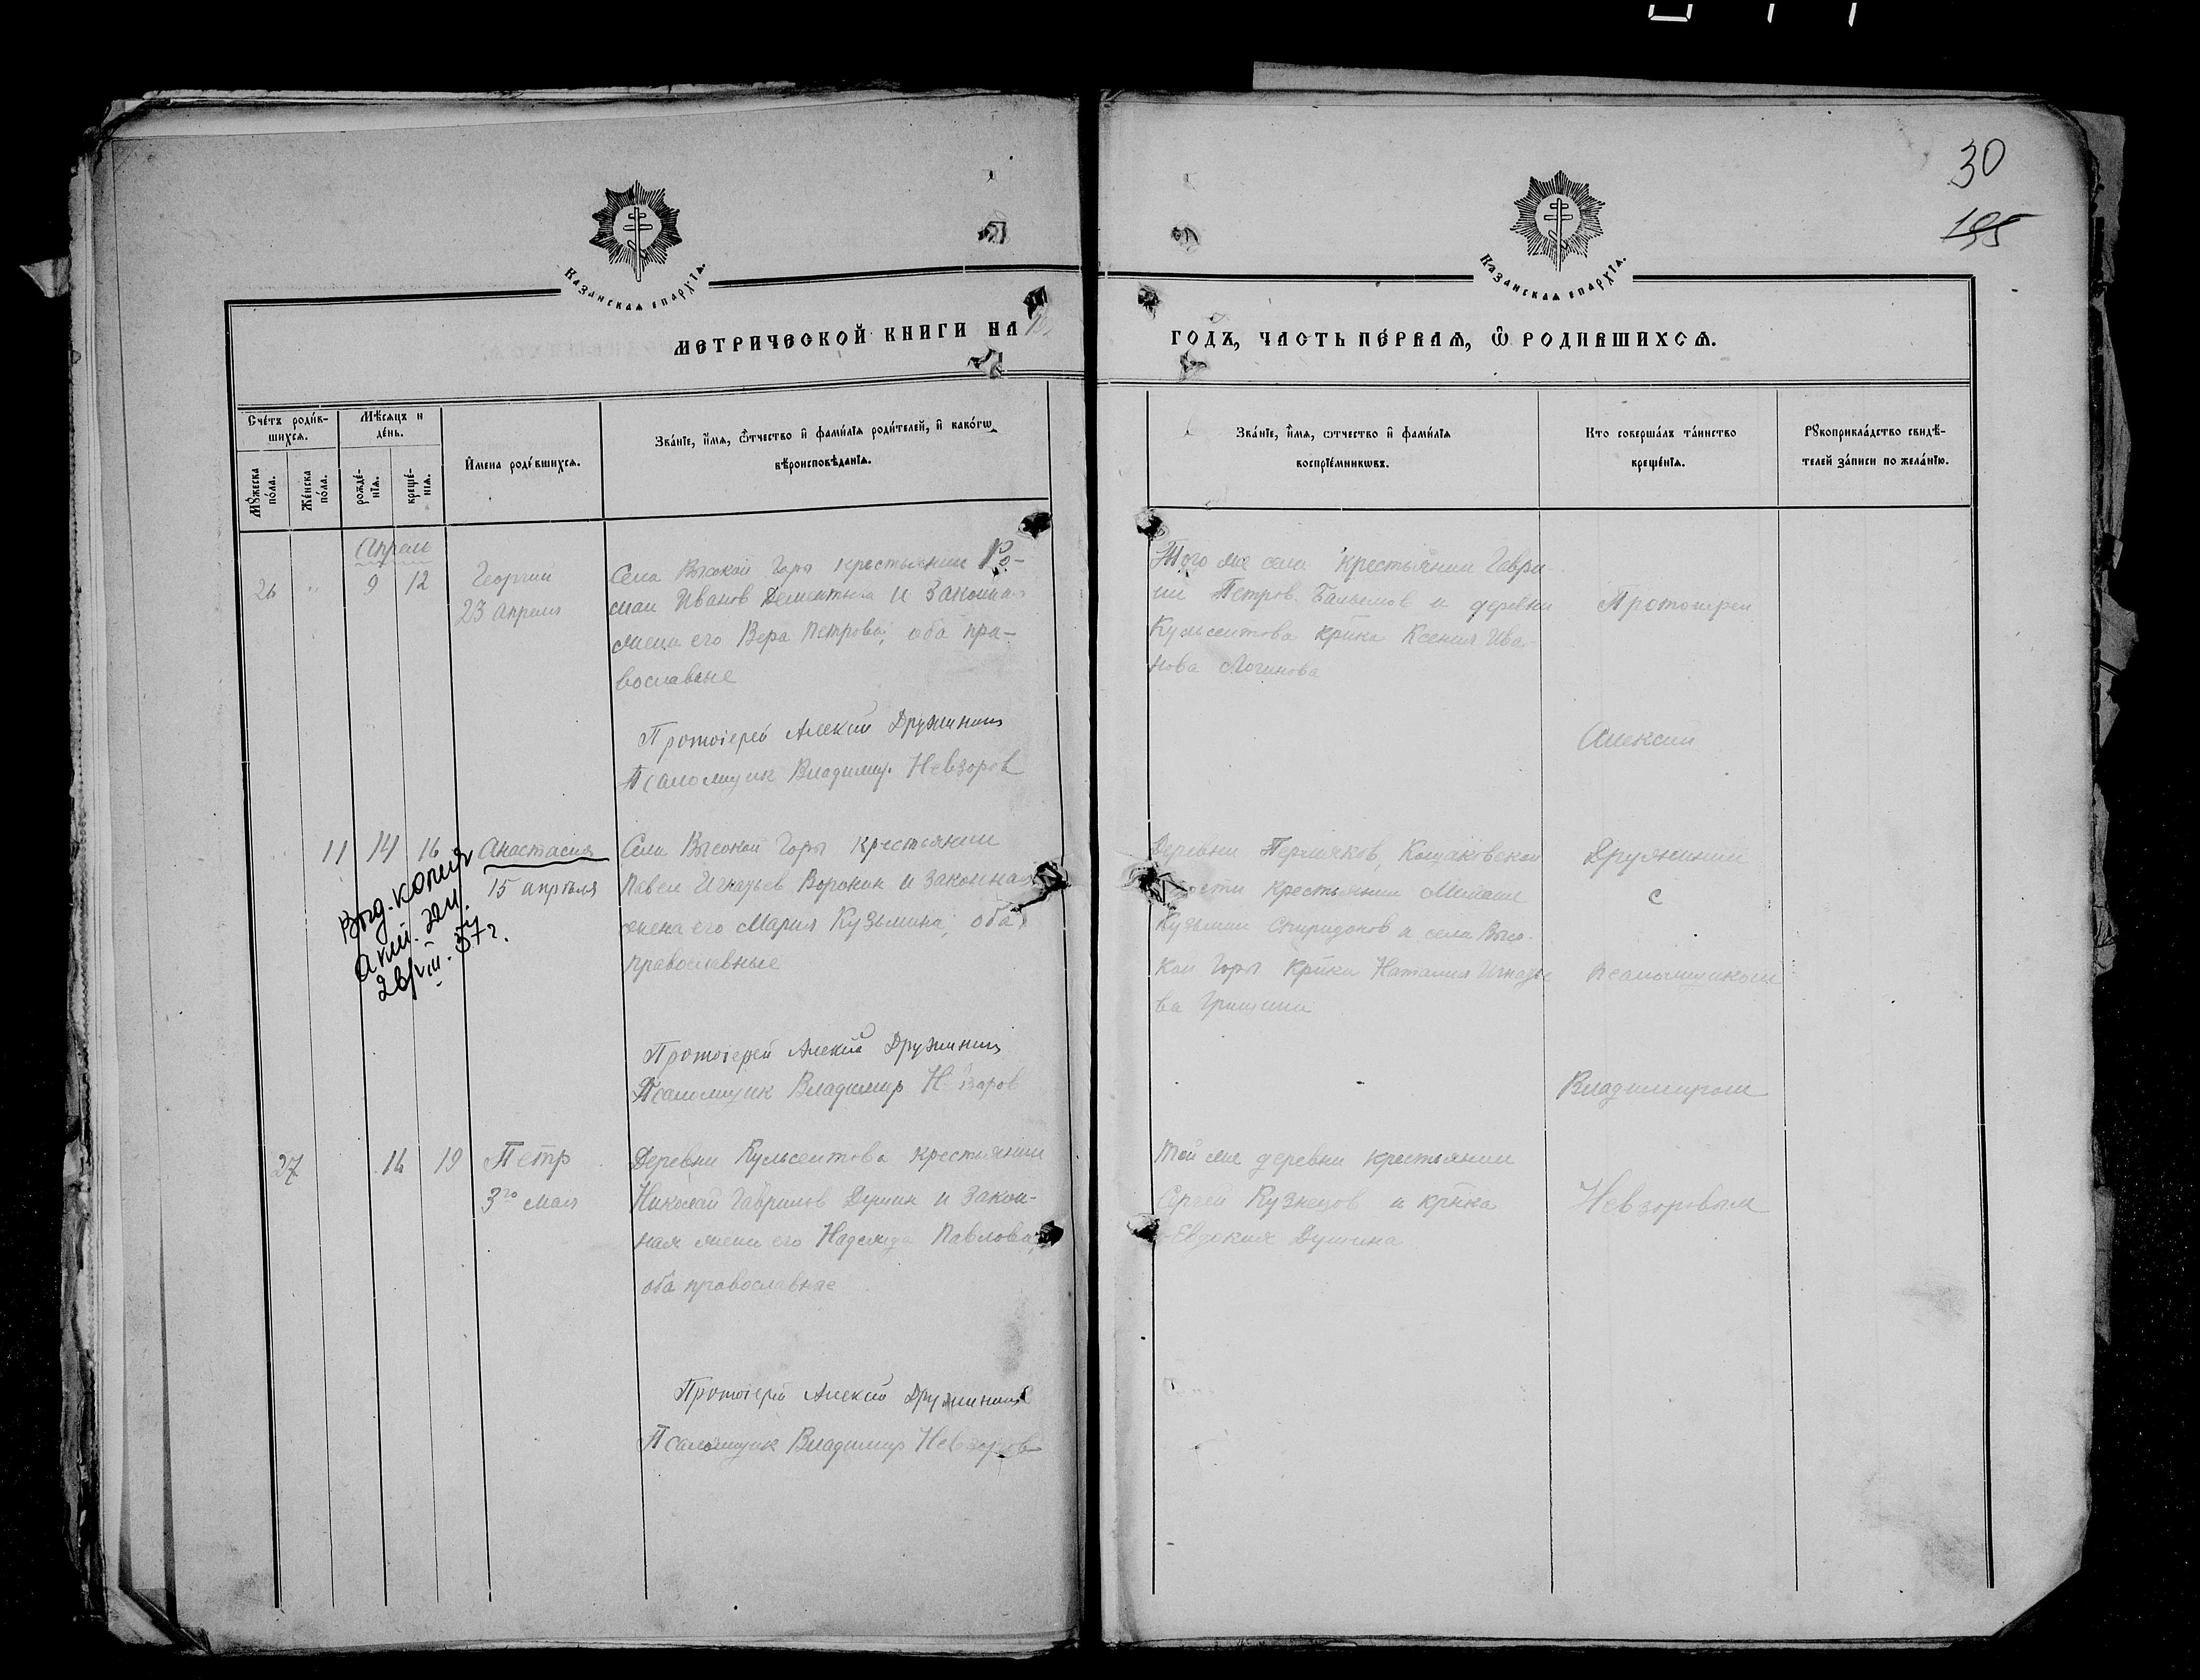 30
195
Казанская епархїѧ.
Казанская епархїѧ.
МЕТРИЧЕСКОЙ КНИГИ НА
ГОДЪ, ЧАСТЬ ПЕРВАЯ, Ѡ РОДИВШИХСѦ.
Счéтъ роди́в-
шихсѧ.
Мѣ́сяцъ и
дéнь.
Мꙋ́жеска
пóла.
Жéнска
пóла.
рождé-
нїѧ.
крещé-
нїѧ.
И҆мена роди́вшихсѧ.
Звáнїе, и҆́мѧ, ѻ҆́тчество и҆ фами́лїѧ роди́телей, и҆ какóгѡ
вѣроисповѣ́данїѧ.
Звáнїе, и҆́мѧ, ѻтчество и҆ фами́лїѧ
воспрїéмникѡвъ.
Кто совершáлъ тáинство
крещéнїѧ.
Рꙋкоприклáдство свидѣ́-
телей зáписи по желáнїю.
Апрель
26 " 9 12 Георгий
23 апреля
Села Высокой Горы крестьянин Ро-
ман Иванов Дементьев и законная
жена его Вера Петрова, оба пра-
вославные
Протоіерей Алексий Дружинин
Псаломщик Владимир Невзоров
Того же села крестьянин Гаври-
ил Петров и деревни
Кульсеитова кр͠нка Ксения Ива-
нова Логинова
Протоиерей
Алексий
11 14 16 Анастасия
15 апреля
Выд. копия
акт. зап.
28/VIII. 57 г.
Села Высокой Горы крестьянин
Павел Игнатьев Воронин и законная
жена его Мария Кузьмина, оба
православные
Протоіерей Алексий Дружинин
Псаломщик Владимир Невзоров
Деревни Пермяков, Кощаковской
волости крестьянин Михаил
Кузьмин Спиридонов и села Высо-
кой Горы кр͠нка Наталия Игнатье-
ва Гришина
Дружинин
с
псаломщиком
Владимиром
27 16 19 Петр
3го мая
Деревни Кульсеитова крестьянин
Николай Гаврилов Душин и закон-
ная жена его Надежда Павлова,
оба православные
Протоіерей Алексий Дружинин
Псаломщик Владимир Невзоров
Той же деревни крестьянин
Сергей Кузнецов и кр͠нка
Евдокия Душина
Невзоровым